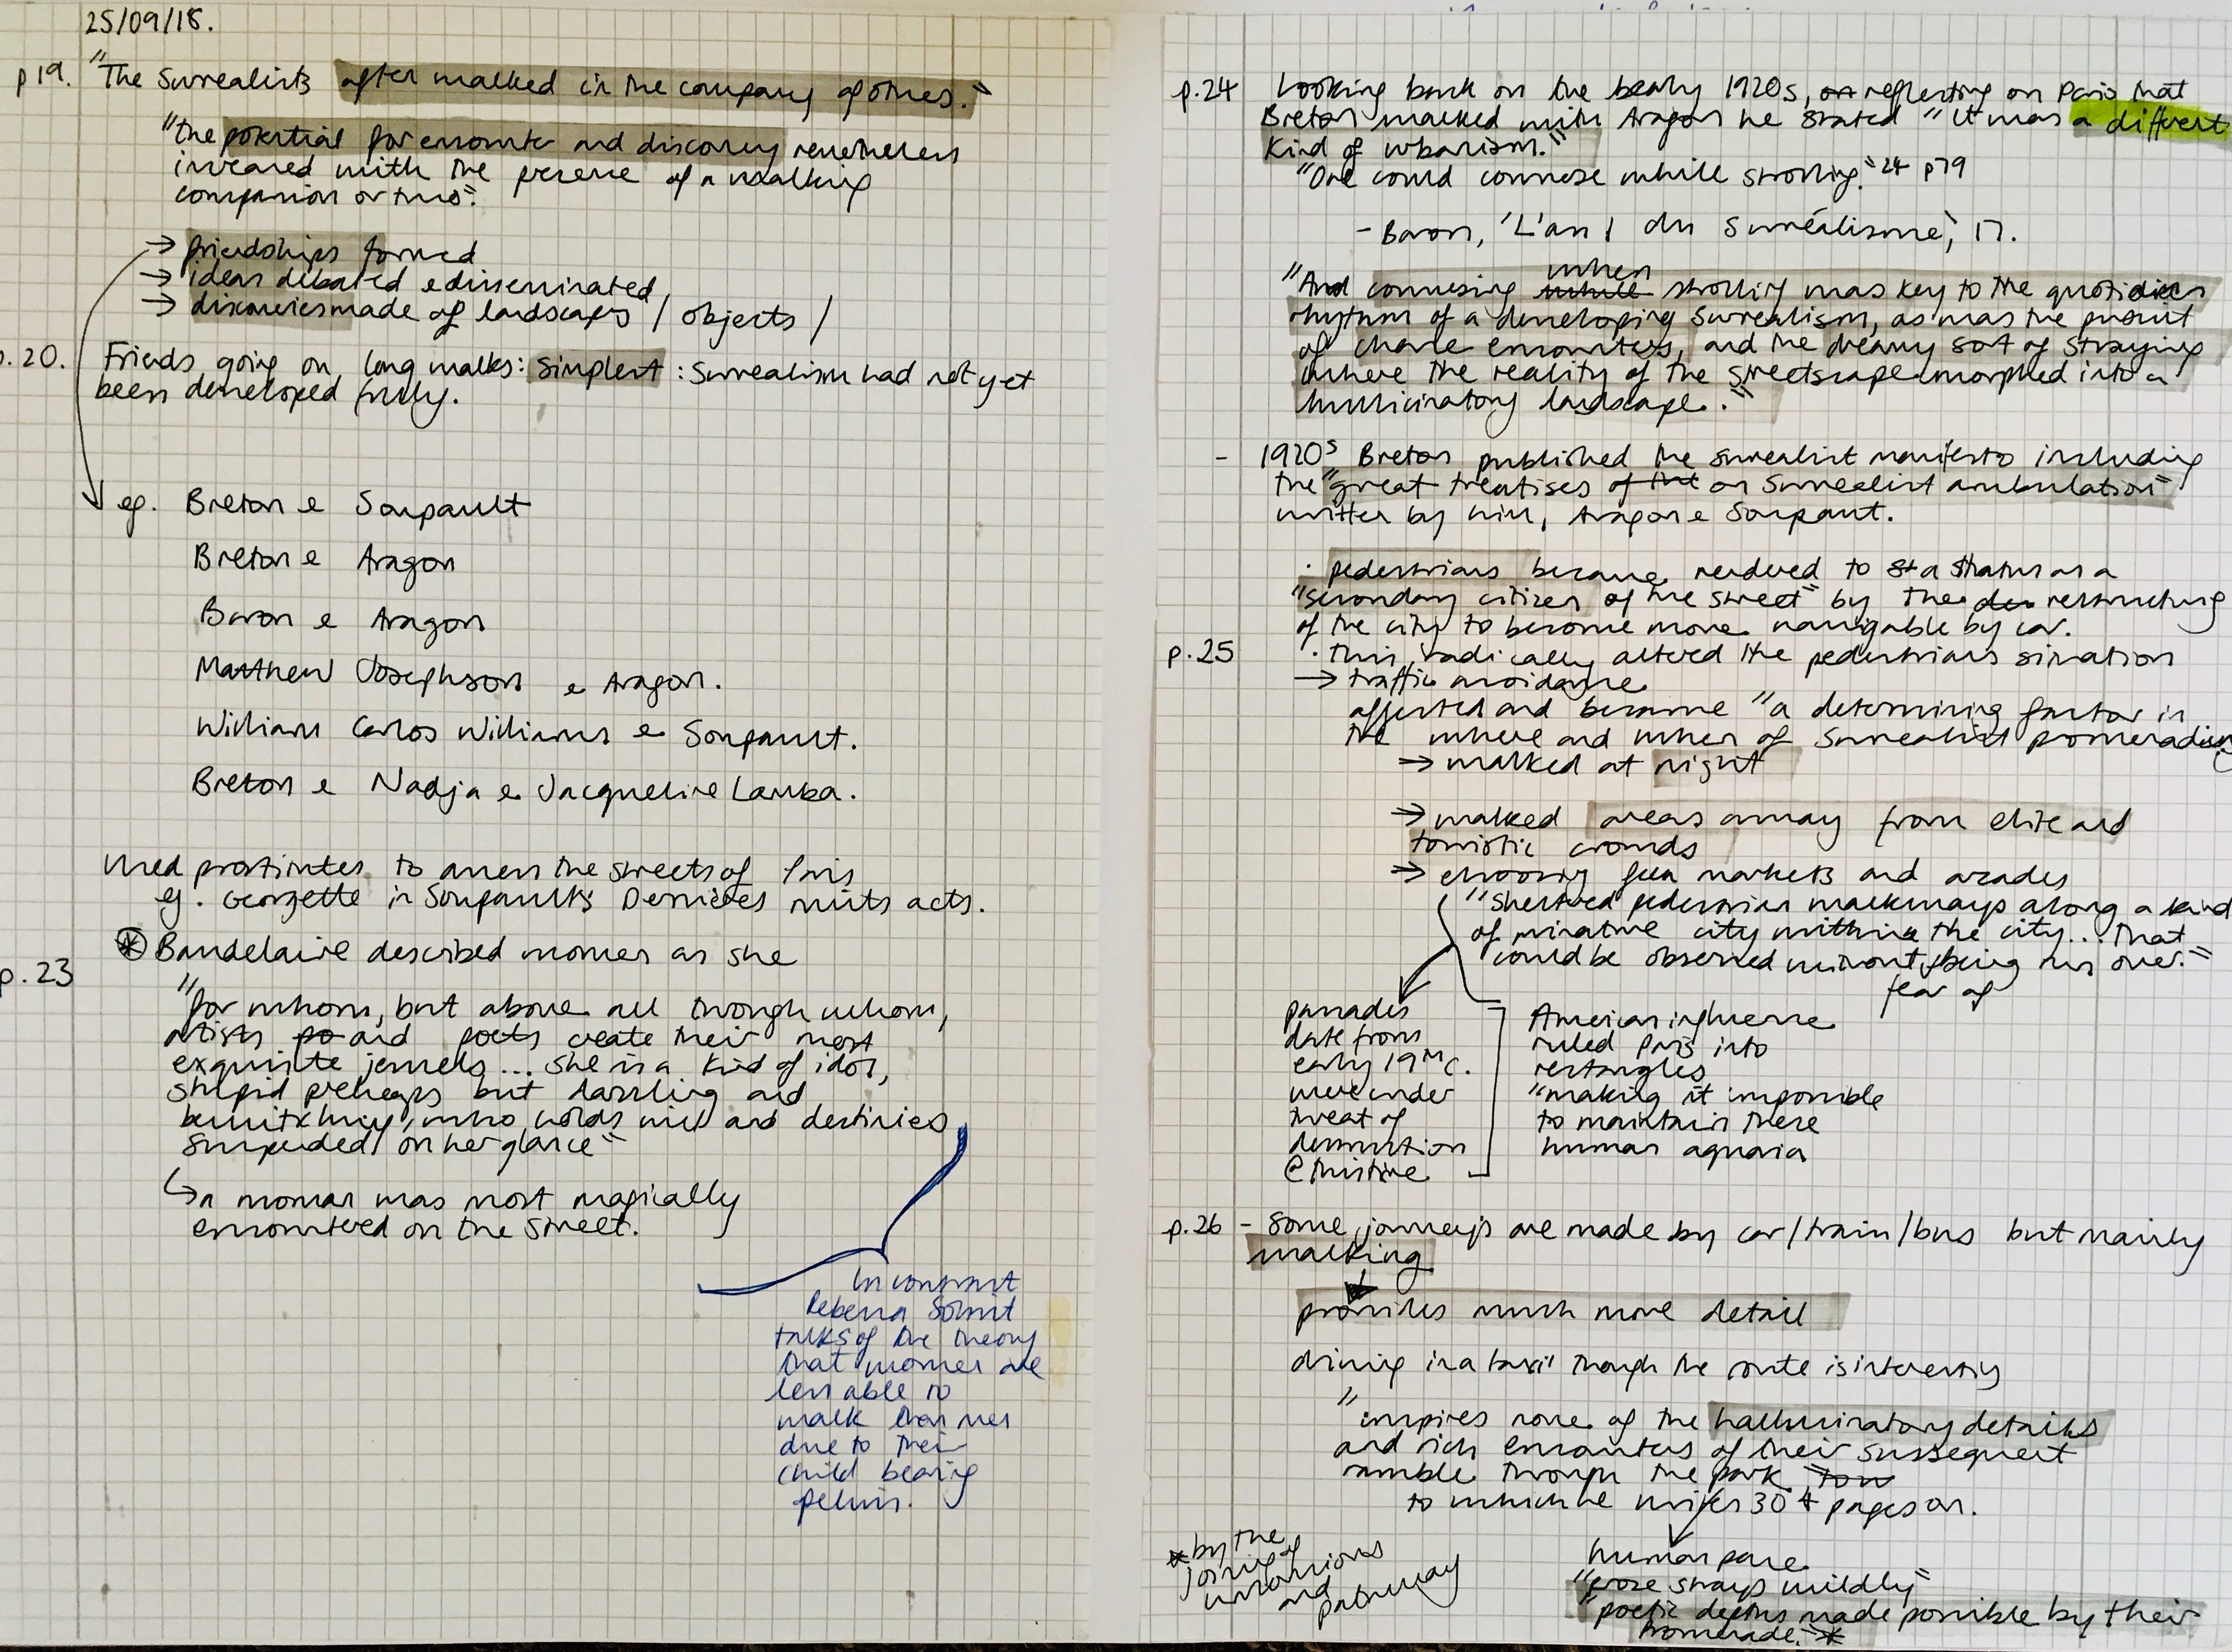 25/09/18.
p19. "The Surrealists often walked in the company of others."
"the potential for encounter and discovery nevertheless
increased with the presence of a walking
companion or two".
→ friendships formed
→ ideas debated & disseminated
→ discoveries made of landscapes / objects /
p.20. Friends going on long walks: simplest: Surrealism had not yet
been developed fully.
eg. Breton & Soupault
Breton & Aragon
Baron & Aragon
Matthew Josephson & Aragon.
William Carlos Williams & Soupault.
Breton & Nadja & Jacqueline Lamba.
Used prostitutes to access the streets of Paris
eg. Georgette in Soupault's Dernières nuits acts.
* Baudelaire described women as she
p.23
"for whom, but above all through whom,
artists po and poets create their most
exquisite jewels... she is a kind of idol,
stupid perhaps but dazzling and
bewitching, who holds wills and destinies
suspended on her glance"
↳ a woman was most magically
encountered on the street.
In contrast
Rebecca Solnit
talks of the theory
that women are
less able to
walk than men
due to their
child bearing
pelvis.
p.24 Looking back on the early 1920s, on reflecting on Paris that
Breton walked with Aragon he stated "it was a different
kind of urbanism."
"One could converse while strolling." 24 p79
- Baron, 'L'an 1 du Surréalisme', 17.
"And conversing while when strolling was key to the quotidian
rhythm of a developing Surrealism, as was the pursuit
of chance encounters, and the dreamy sort of straying
where the reality of the streetscape morphed into a
hallucinatory landscape."
- 1920s Breton published the surrealist manifesto including
the "great treatises of the on Surrealist ambulation"
written by him, Aragon & Soupault.
· pedestrians became rendered to st a status as a
"secondary citizen of the street" by the restructuring
of the city to become more navigable by car.
p.25 · This radically altered the pedestrians situation
→ traffic avoidance
affected and became "a determining factor in
the where and when of Surrealist promenading
→ walked at night
→ walked areas away from elite and
touristic crowds
→ choosing flea markets and arcades
"sheltered pedestrian walkways along a kind
of miniature city within the city... that
could be observed without fear of being run over."
parades
date from
early 19th c.
were under
threat of
destruction
@ this time
American influence
ruled Paris into
rectangles
"making it impossible
to maintain these
human aquaria
p.26 - some journeys are made by car/train/bus but mainly
walking
provides much more detail
driving in a taxi though the route is interesting
"inspires none of the hallucinatory details
and rich encounters of their subsequent
ramble through the park"
to which he writes 30+ pages on.
human pace
"prose strays wildly"
"poetic depths made possible by their
promenade."*
* by the
joining of
unconscious
and
pathway